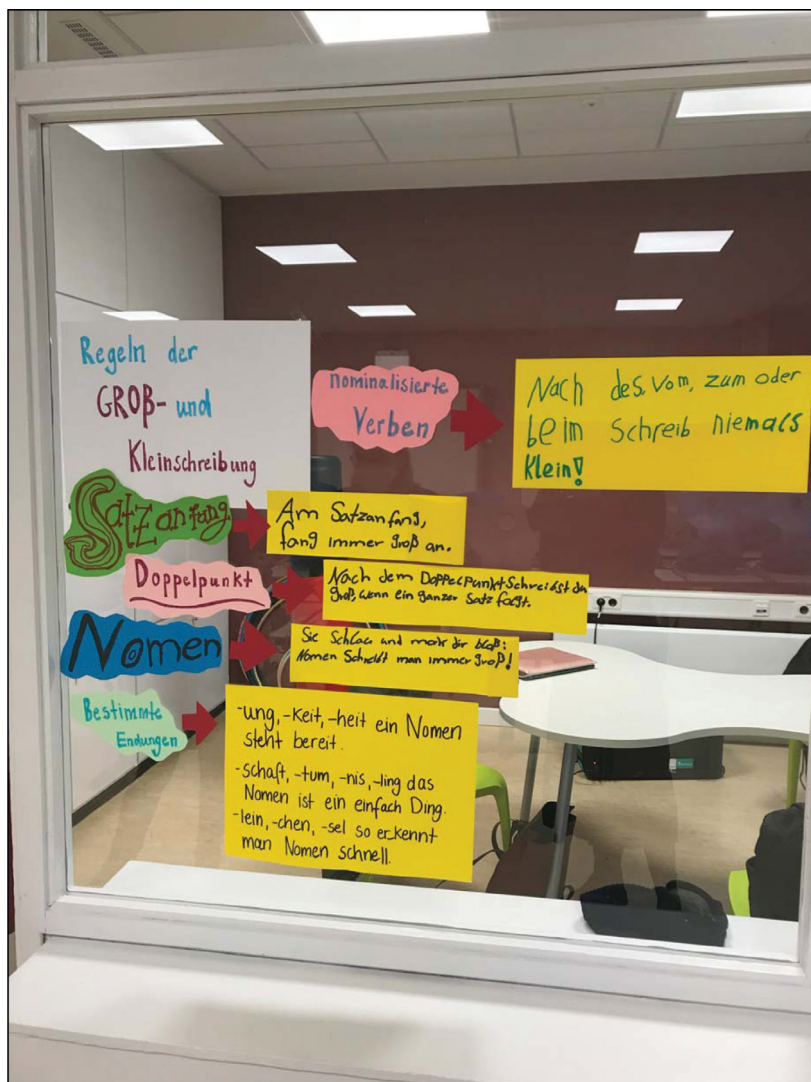 Regeln der
GROß- und
Kleinschreibung
nominalisierte
Verben
Nach des, vom, zum oder
beim schreib niemals
Klein!
Satzanfang
Am Satzanfang,
fang immer groß an.
Doppelpunkt
Nach dem Doppelpunkt schreibst du
groß, wenn ein ganzer Satz folgt.
Nomen
Sie schlau und merk dir bloß:
Nomen schreibt man immer groß!
Bestimmte
Endungen
-ung, -keit, -heit ein Nomen
steht bereit.
-schaft, -tum, -nis, -ling das
Nomen ist ein einfach Ding.
-lein, -chen, -sel so erkennt
man Nomen schnell.